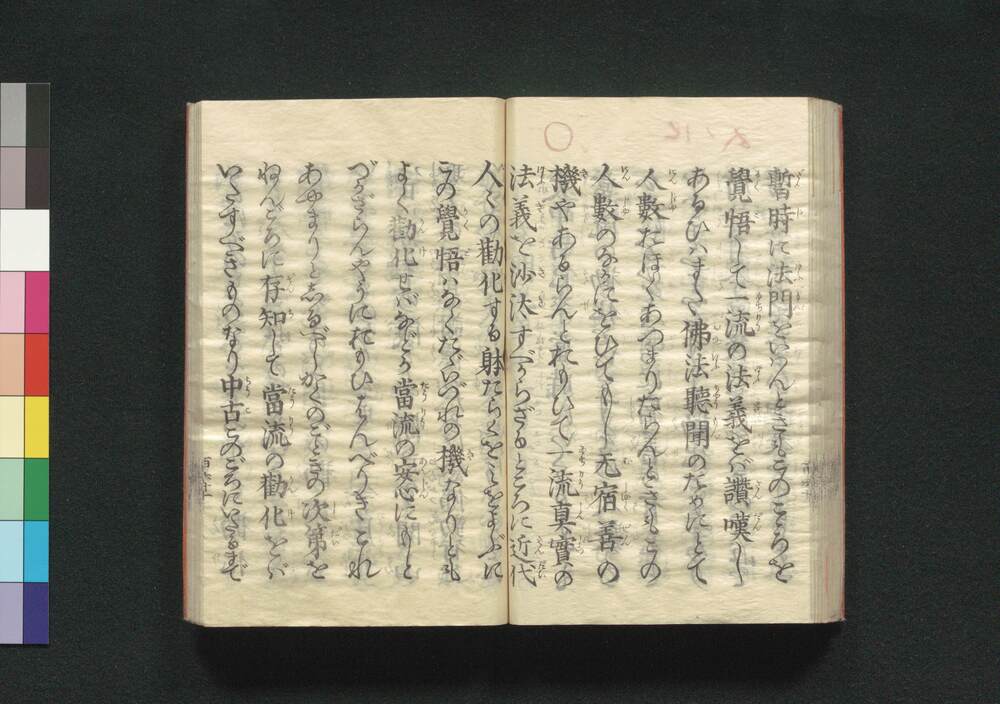 暫時に法門をいはんときもこのこころを
覺悟して一流の法義をば讃嘆し
あるひはまた佛法聽聞のためにとて
人數おほくあつまりたらんときもこの
人數のなかにをひてもし无宿善の
機やあるらんとおもひて一流真實の
法義を沙汰すべからざるところに近代
人々の勸化する躰たらくをみをよぶに
この覺悟はなくたゞいづれの機なりとも
よく勸化せばなどか當流の安心にもと
づかざらんやうにおもひはんべりきこれ
あやまりとしるべしかくのごときの次第を
ねんごろに存知して當流の勸化をば
いたすべきものなり中古このごろにいたるまで